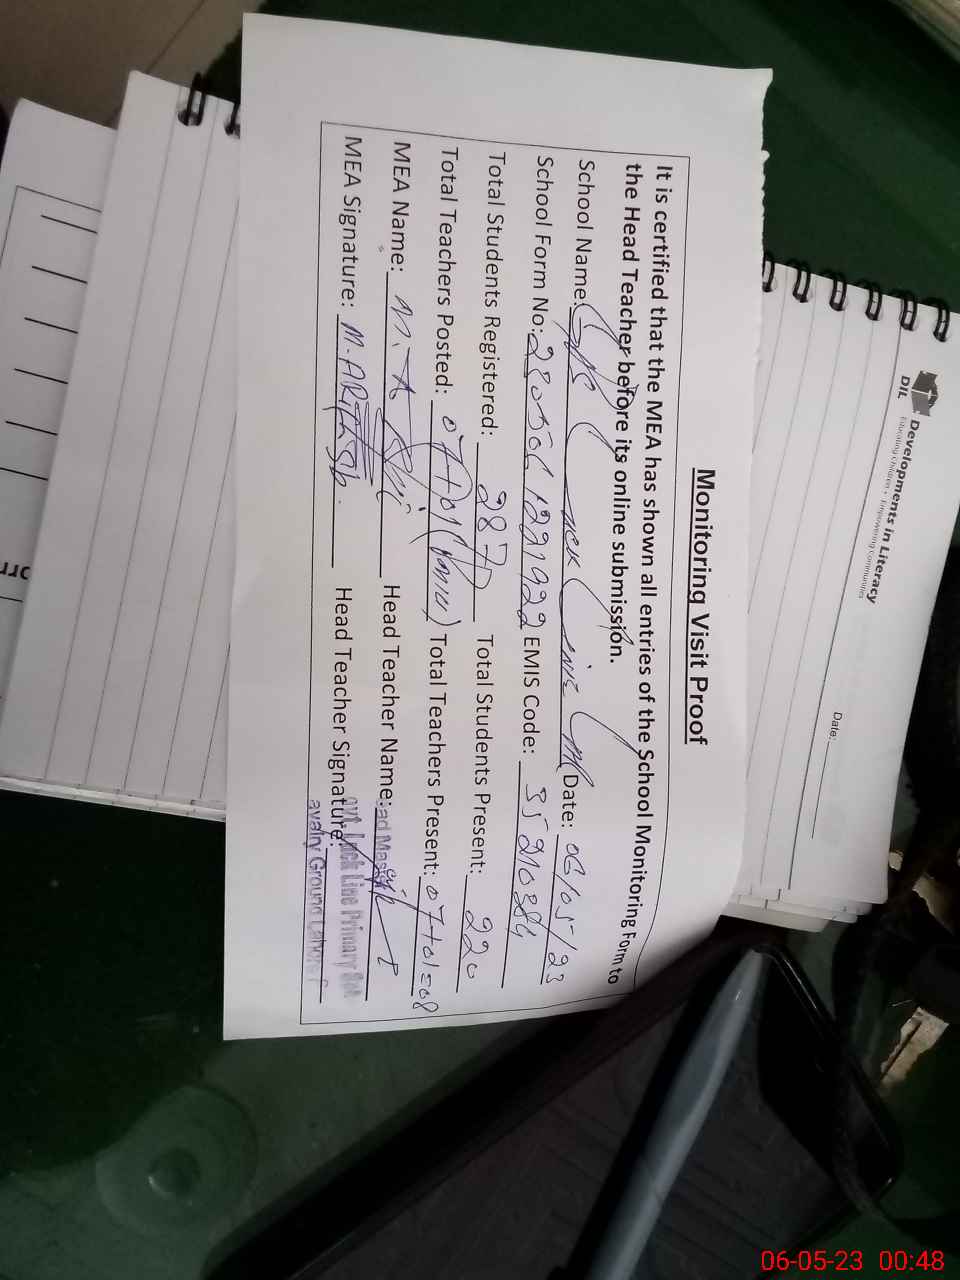 Monitoring Visit Proof
It is certified that the MEA has shown all entries of the School Monitoring Form to
the Head Teacher before its online submission.
School Name: Date: 06/05/23
School Form No: EMIS Code: 35210384
Total Students Registered: 287 Total Students Present: 220
Total Teachers Posted: 07+01 Total Teachers Present: 07+01=08
MEA Name: Head Teacher Name:
MEA Signature: Head Teacher Signature:
Line Primary
avalry Ground Lahore
Developments in Literacy
DIL
Educating Children • Empowering Communities
Date:
06-05-23 00:48